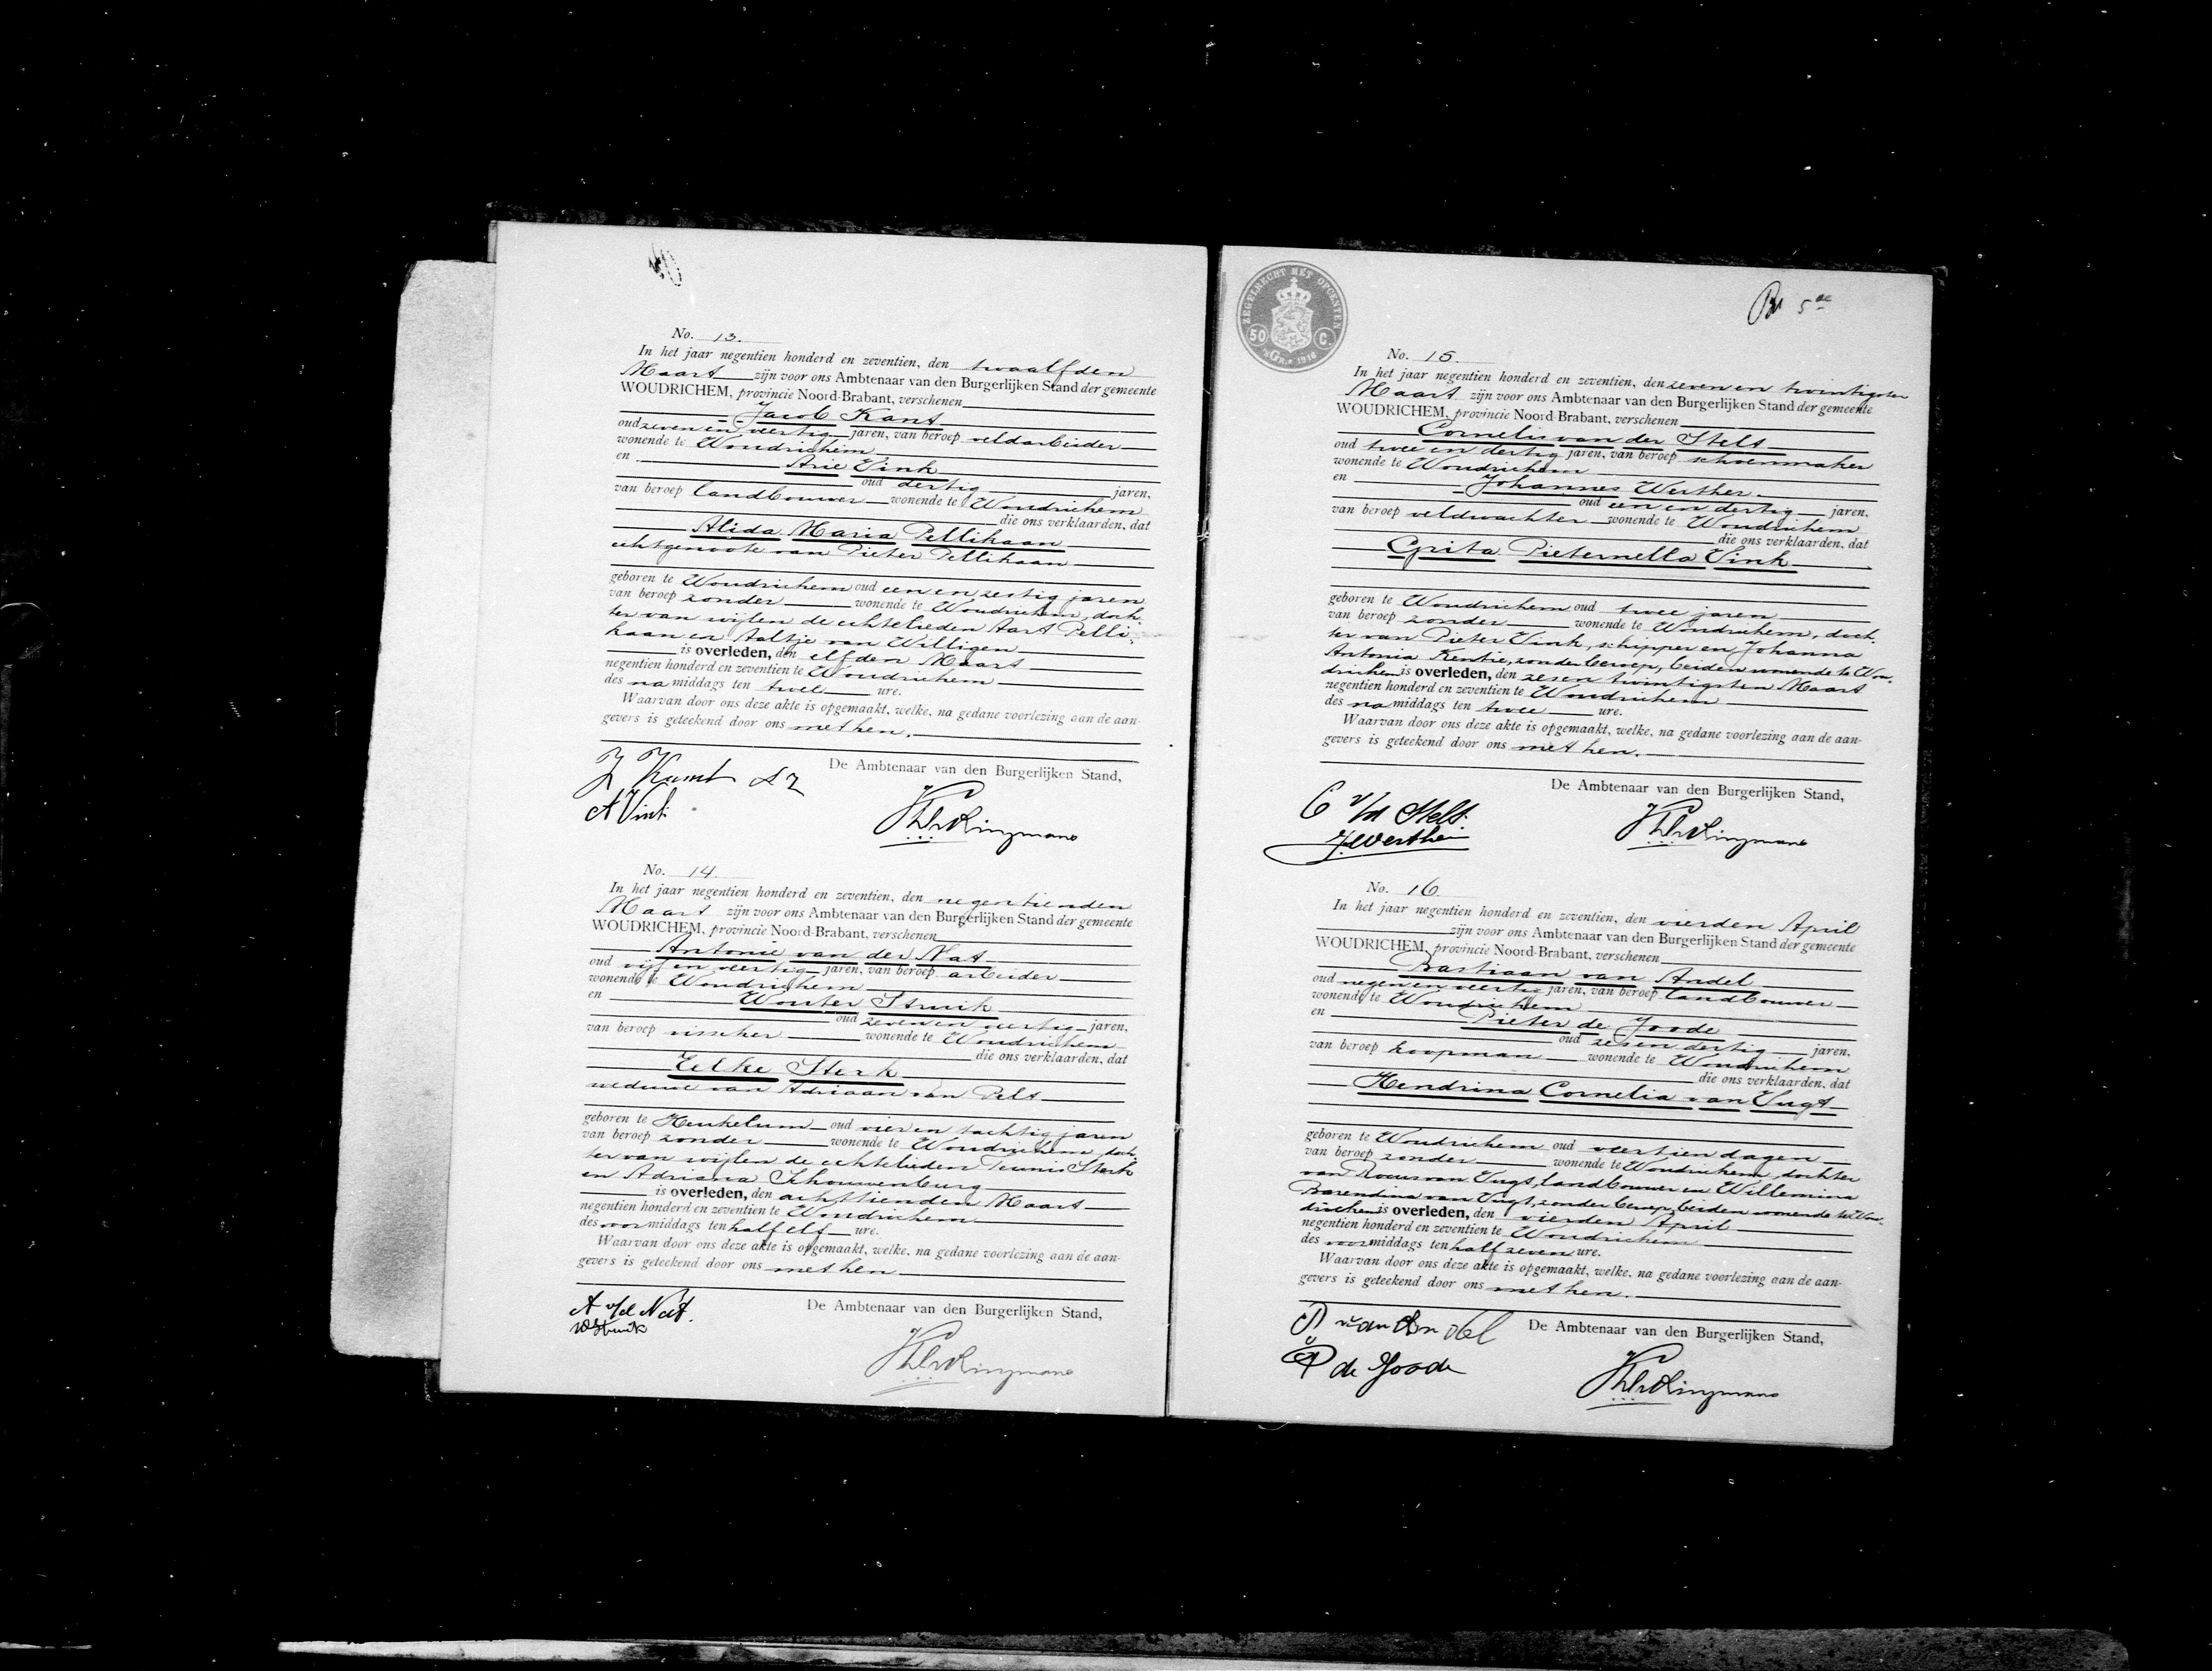 No. 13.
In het jaar negentien honderd en zeventien, den twaalfden
Maart zijn voor ons Ambtenaar van den Burgerlijken Stand der gemeente
WOUDRICHEM, provincie Noord-Brabant, verschenen
Jacob Kant
oud zeven en veertig jaren, van beroep veldarbeider
wonende te Woudrichem
en Arie Vink
oud dertig jaren,
van beroep landbouwer wonende te Woudrichem
die ons verklaarden, dat
Alida Maria Pellikaan
echtgenoote van Pieter Pellikaan
geboren te Woudrichem oud een en zestig jaren
van beroep zonder wonende te Woudrichem, doch-
ter van wijlen de echtelieden Aart Pelli-
kaan en Aaltje van Willigen
is overleden, den elfden Maart
negentien honderd en zeventien te Woudrichem
des namiddags ten twee ure.
Waarvan door ons deze akte is opgemaakt, welke, na gedane voorlezing aan de aan-
gevers is geteekend door ons met hen.
De Ambtenaar van den Burgerlijken Stand,
J Kant
A Vink
No. 14.
In het jaar negentien honderd en zeventien, den negentienden
Maart zijn voor ons Ambtenaar van den Burgerlijken Stand der gemeente
WOUDRICHEM, provincie Noord-Brabant, verschenen
Antonie van der Nat
oud vijf en veertig jaren, van beroep arbeider
wonende te Woudrichem
en Wouter Struik
oud zeven en veertig jaren,
van beroep visscher wonende te Woudrichem
die ons verklaarden, dat
Eelke Sterk
weduwe van Adriaan van Pelt
geboren te Heukelum oud vier en tachtig jaren
van beroep zonder wonende te Woudrichem, doch-
ter van wijlen de echtelieden Teunis Sterk
en Adriana Schouwenburg
is overleden, den achttienden Maart
negentien honderd en zeventien te Woudrichem
des voormiddags ten half elf ure.
Waarvan door ons deze akte is opgemaakt, welke, na gedane voorlezing aan de aan-
gevers is geteekend door ons met hen
De Ambtenaar van den Burgerlijken Stand,
A v/d Nat.
W Struik
ZEGELRECHT MET OPCENTEN
50 C.
1916
No. 15.
In het jaar negentien honderd en zeventien, den zeven en twintigsten
Maart zijn voor ons Ambtenaar van den Burgerlijken Stand der gemeente
WOUDRICHEM, provincie Noord-Brabant, verschenen
Cornelis van der Stelt
oud twee en dertig jaren, van beroep schoenmaker
wonende te Woudrichem
en Johannes Werther
oud een en dertig jaren,
van beroep veldwachter wonende te Woudrichem
die ons verklaarden, dat
Grita Pieternella Vink
geboren te Woudrichem oud twee jaren
van beroep zonder wonende te Woudrichem, doch-
ter van Pieter Vink, schipper en Johanna
Antonia Kentie, zonder beroep, beiden wonende te Wou-
drichem is overleden, den zes en twintigsten Maart
negentien honderd en zeventien te Woudrichem
des namiddags ten twee ure.
Waarvan door ons deze akte is opgemaakt, welke, na gedane voorlezing aan de aan-
gevers is geteekend door ons met hen.
De Ambtenaar van den Burgerlijken Stand,
C v/d Stelt.
No. 16.
In het jaar negentien honderd en zeventien, den vierden April
zijn voor ons Ambtenaar van den Burgerlijken Stand der gemeente
WOUDRICHEM, provincie Noord-Brabant, verschenen
Bastiaan van Andel
oud negen en veertig jaren, van beroep landbouwer
wonende te Woudrichem
en Pieter de Joode
oud zes en dertig jaren,
van beroep koopman wonende te Woudrichem
die ons verklaarden, dat
Hendrina Cornelia van Vugt
geboren te Woudrichem oud veertien dagen
van beroep zonder wonende te Woudrichem, dochter
van Rocus van Vugt, landbouwer en Willemina
Barendina van Vugt, zonder beroep, beiden wonende te Wou-
drichem is overleden, den vierden April
negentien honderd en zeventien te Woudrichem
des voormiddags ten half zeven ure.
Waarvan door ons deze akte is opgemaakt, welke, na gedane voorlezing aan de aan-
gevers is geteekend door ons met hen.
De Ambtenaar van den Burgerlijken Stand,
B van Andel
P de Joode